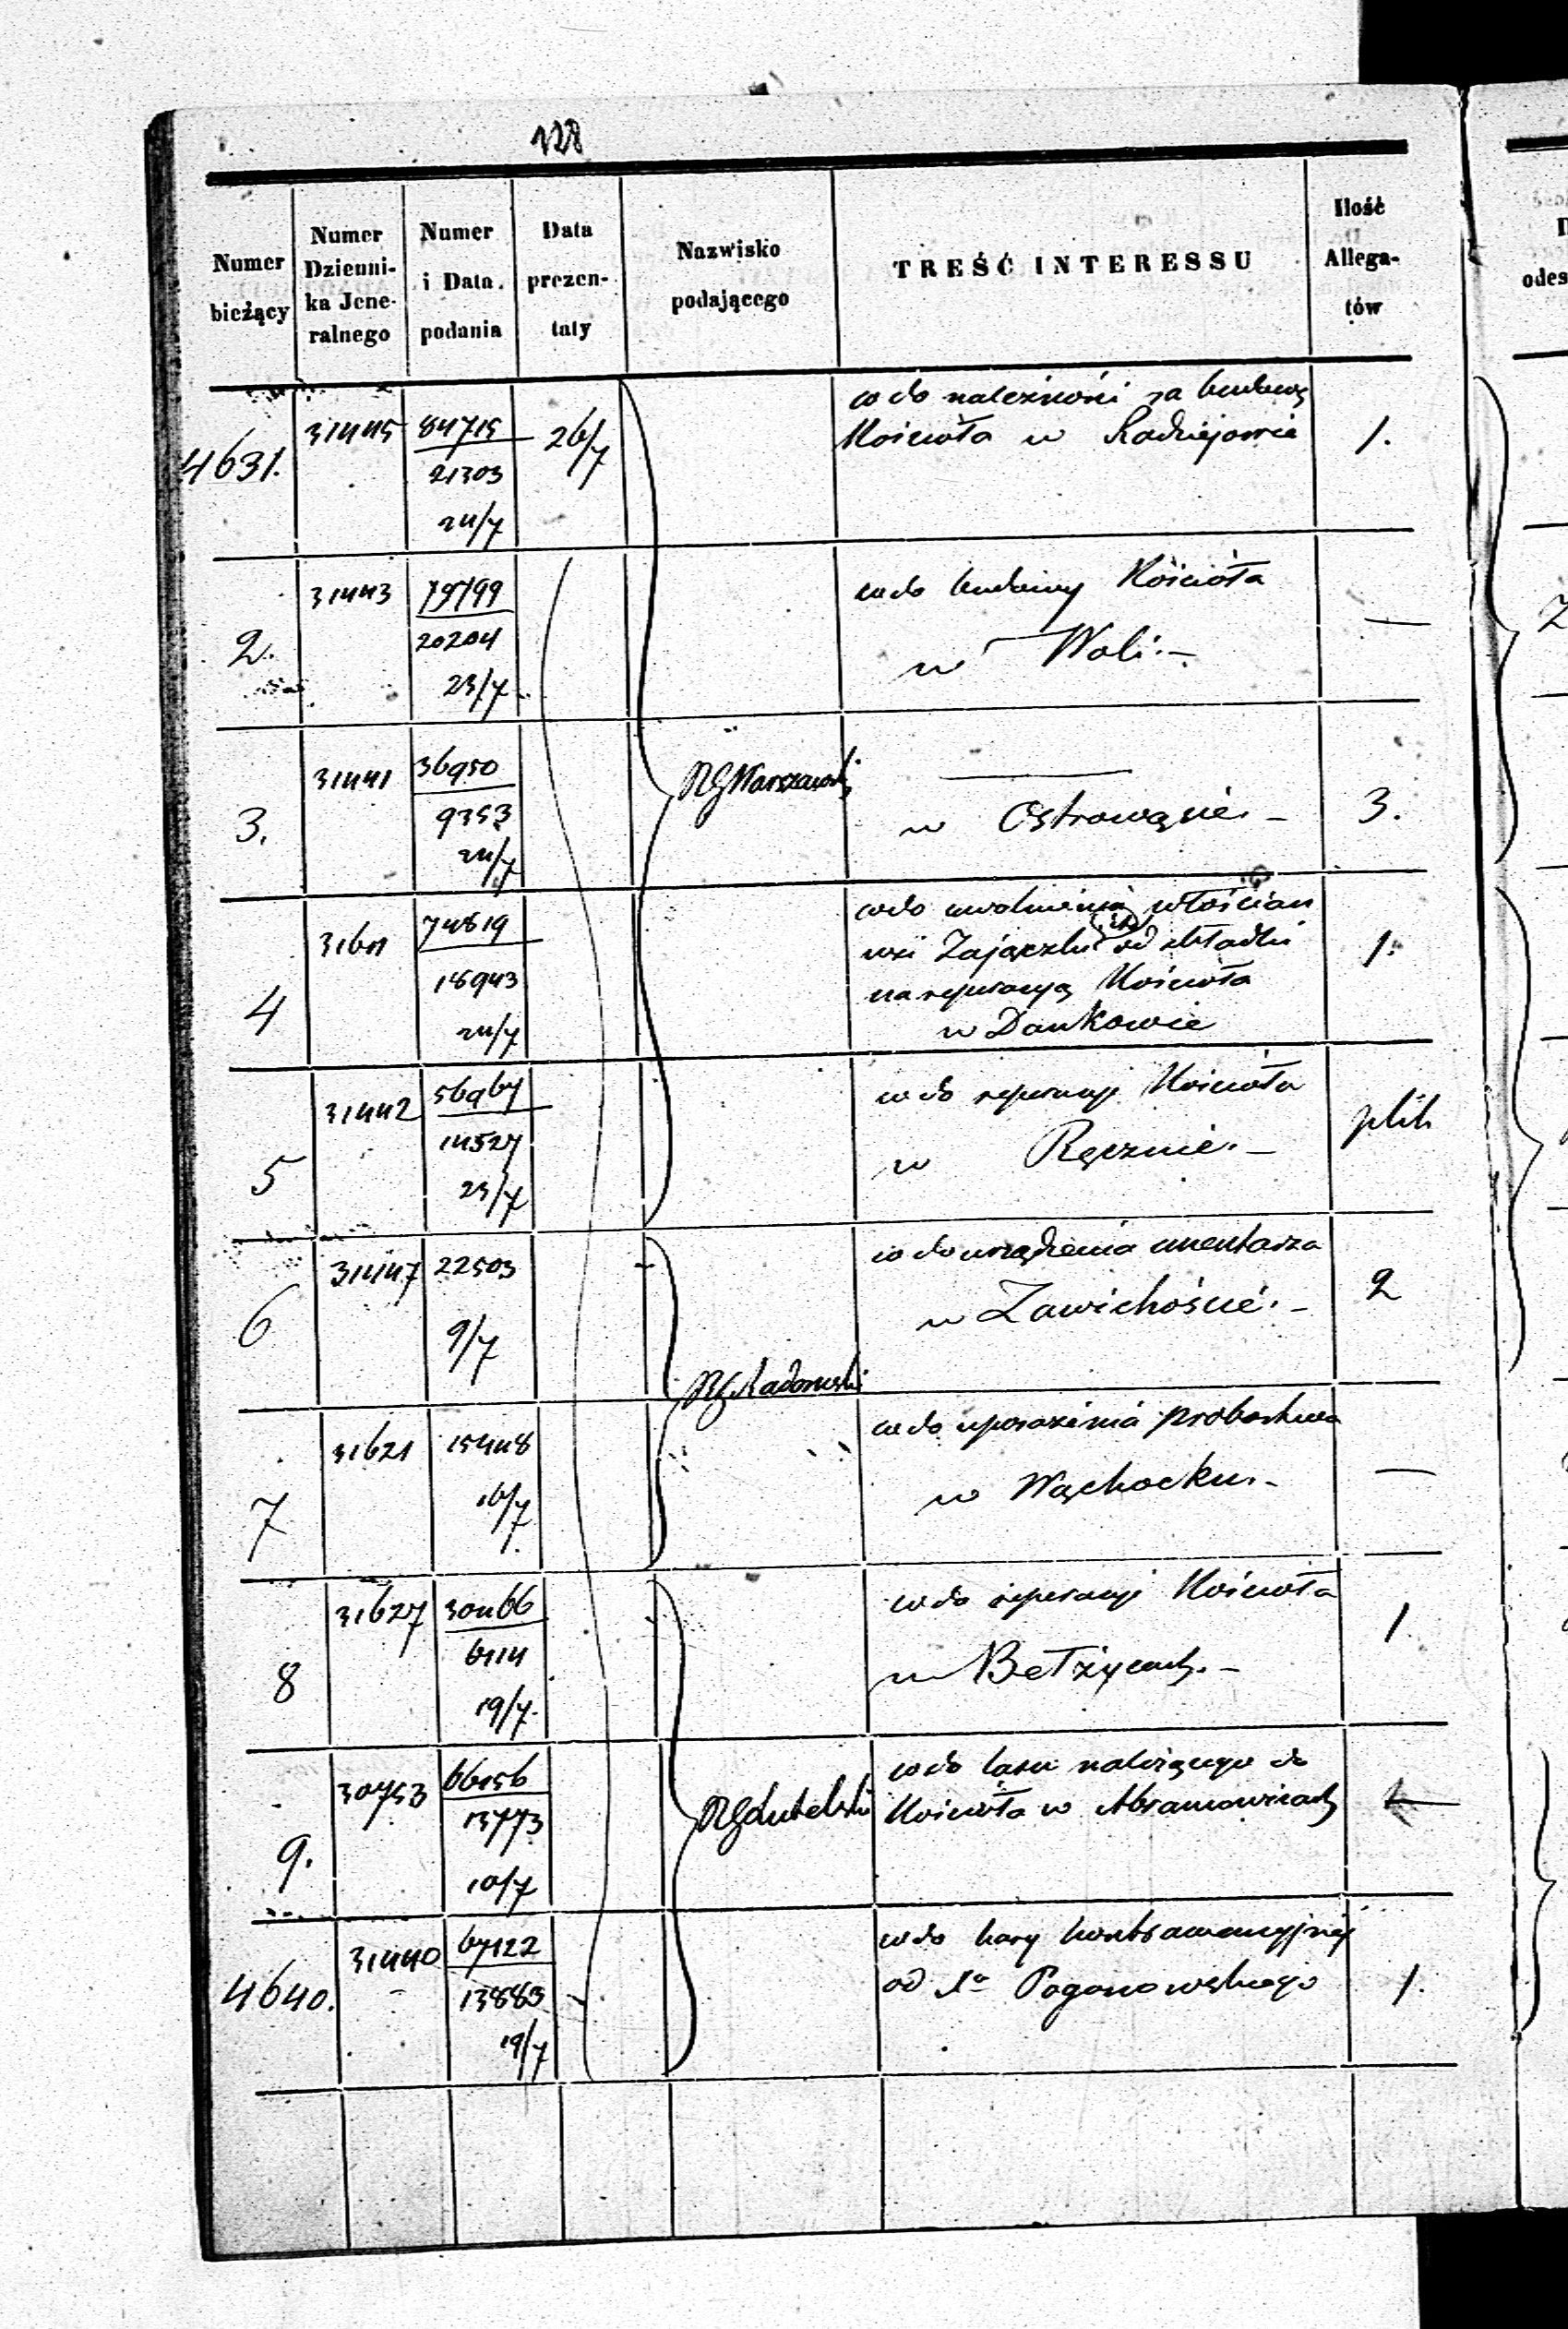 128
Numer bieżący
Numer Dziennika Jeneralnego
Numer i Data podania
Data prezentaty
Nazwisko podającego
TREŚĆ INTERESSU
Ilość Allegatów
4631.
31445
84715
21303
24/7
26/7
co do należności za budowę
Kościoła w Radziejowie
1.
2.
31443
79799
20204
23/7
co do budowy Kościoła
w Woli. –
—
3.
31441
36950
9353
24/7
RGWarszawski
—
w Ostrowąsie. –
3.
4
74819
18943
24/7
co do uwolnienia włościan
wsi Zajączki od składki
na reperacyą Kościoła
w Dankowie
1.
5
31442
56967
14527
23/7
co do reperacyi Kościoła
w Ręcznie. –
plik
6
31447
22503
9/7
co do urządzenia cmentarza
w Zawichoście. –
2
RGRadomski
7
31621
15448
16/7
co do uposażenia probostwa
w Wąchocku. –
—
8
31627
30466
6114
19/7
co do reperacyi Kościoła
w Bełżycach. –
1
9.
30753
66156
13773
10/7
RGLubelski
co do lasu należącego do
Kościoła w Abramowicach
4640.
31440
67122
13883
19/7
co do kary kontrawencyjnej
od Xa Pogonowskiego
1.